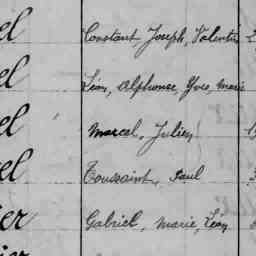 el Constant, Joseph, Valentin
el Léon, Alphonse, Yves, Marie
el Marcel, Julien
el Toussaint, Paul
er Gabriel, Marie, Léon